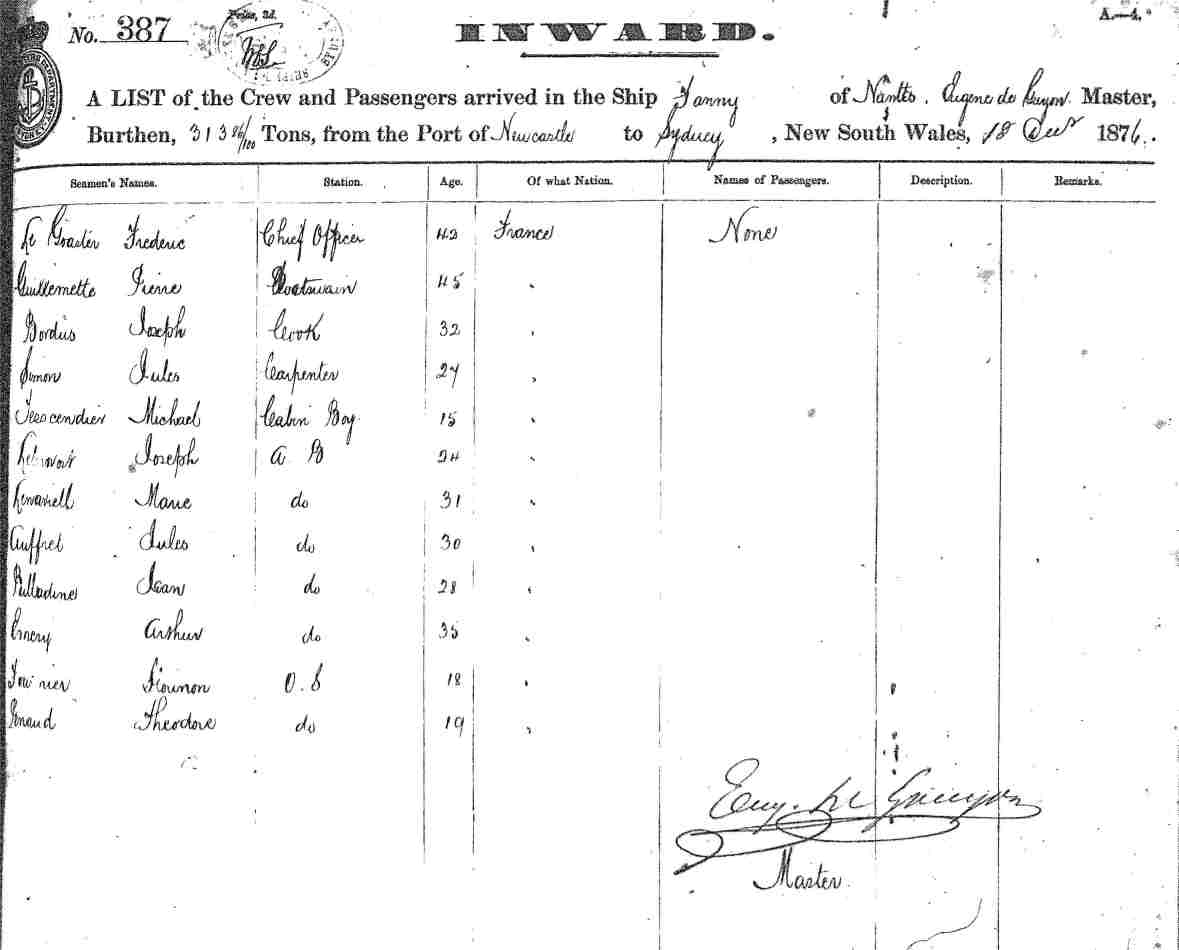 No. 387
Price, 3d.
INWARD.
A.—4.
A LIST of the Crew and Passengers arrived in the Ship Fanny of Nantes. Eugene de Guyon Master,
Burthen, 313 86/100 Tons, from the Port of Newcastle to Sydney, New South Wales, 18 Decr 1876.
Seamen's Names. Station. Age. Of what Nation. Names of Passengers. Description. Remarks.
Le Goaster Frederic Chief Officer 42 France None
Guillemette Pierre Boatswain 45 "
Bordus Joseph Cook 32 "
Simon Jules Carpenter 27 "
Michael Cabin Boy 15 "
Joseph A B 24 "
Marie do 31 "
Auffret Jules do 30 "
Jean do 28 "
Emery Arthur do 35 "
O.S 18 "
Theodore do 19 "
Eug. de Guuyon
Master.